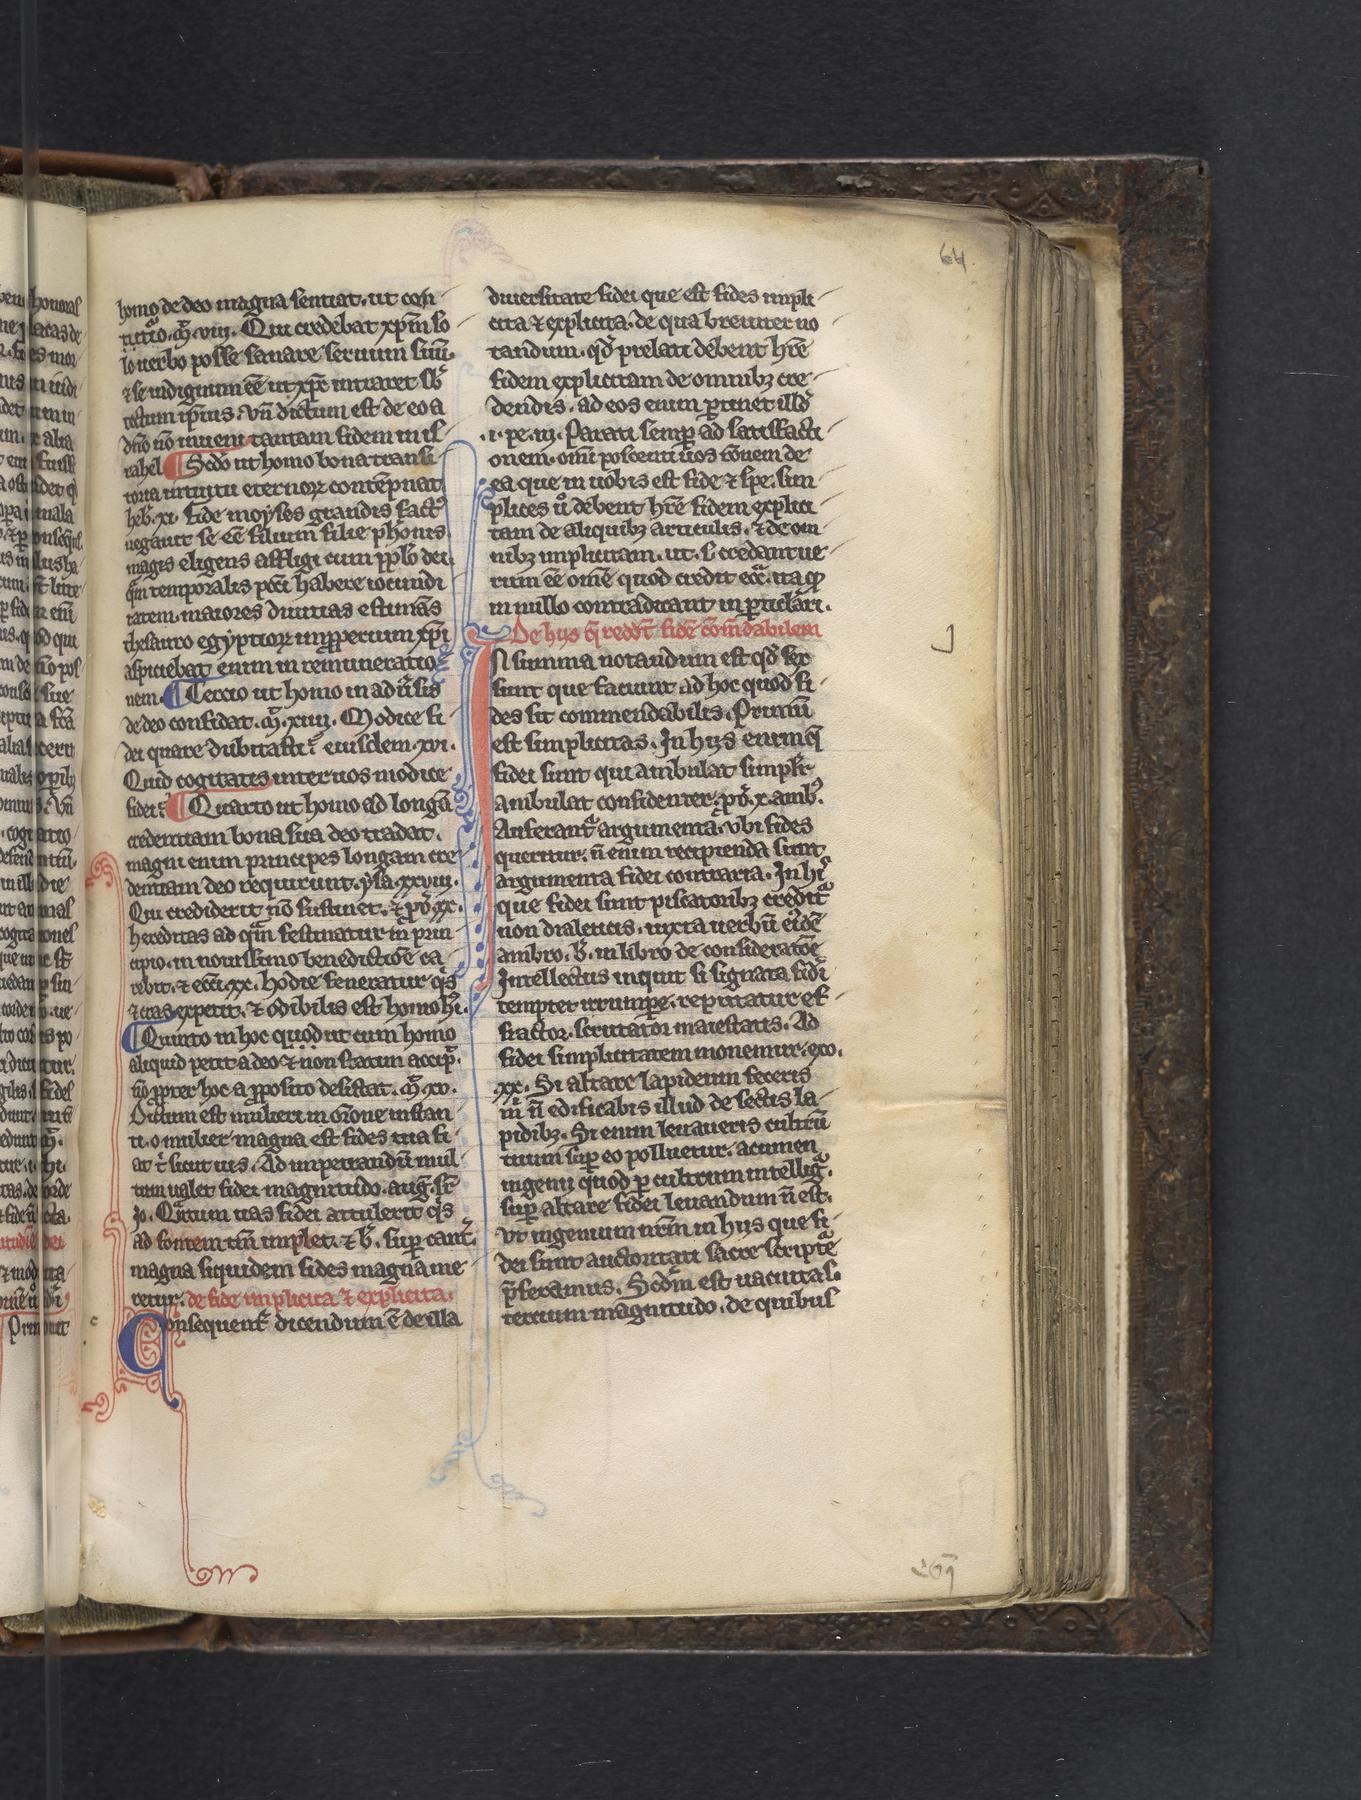 64
homo de deo magna sentiat. ut cen
turio. mͣ. viii. Qui credebat xp̄m so
lo uerbo posse sanare seruum suū.
⁊ se indignum ēē ut xp̄c intraret sb̾
tectum ip̄ius. vn̄ dictum est de eo a
dn̄o nō inueni tantam fidem in is
rahel. ¶ Scd̾o ut homo bona transi
toria intuitu eternoꝝ contēpnat.
heb̾. xi. fide moyses grandis fact᷒
negauit se ēē filium filie ph̾onis
magis eligens affligi cum pp̄lo dei
qͣ̄m temporalis pc̄c̄i habere iocundi
tatem. maiores diuitias estimās
thesauro egyptioꝝ impꝓperium xp̄i
aspiciebat enim in remuneratio
nem. ¶ Tercio ut homo in adu̾sis
de deo confidat. mͣ. xiiii. Modice fi
dei quare dubitasti? eiusdem. xvi.
Quid cogitatis inter uos modice
fidei? ¶ Quarto ut homo ad longā
credentiam bona sua deo tradat.
magni enim principes longam cre
dentiam deo requirunt. ysa. xxviii.
Qui crediderit nō festinet. ⁊ ꝓū. xx.
hereditas ad qͣ̄m festinatur in prin
cipio. in nouissimo benedictiōe ca
rebit. ⁊ ecc̄i. xx. hodie feneratur qͥs
⁊ cras expetit. ⁊ odibilis est homo hͥ.
¶ Quinto in hoc quod ut cum homo
aliquid petit a deo ⁊ non statim accip̄.
nō ꝓpter hoc a ꝓposito desistat. mͣ. xv.
Dictum est mulieri in or̄one instan
ti. o mulier magna est fides tua fi
at t̾ sicut uis. Ad impetrandū mul
tum ualet fidei magnitudo. aug̾. sr̄
io. Qͣntum uas fidei attulerit qͥs
ad fontem tm̄ implet. ⁊ b̾. suꝑ cant̾.
magna siquidem fides magna me
retur. de fide implicita ⁊ explicita.
Consequent̾ dicendum ē de illa
diuersitate fidei que est fides impli
cita ⁊ explicita. de qua breuiter no
tandum. qd̾ prelati debent hr̄e
fidem explicitam de omnibꝫ cre
dendis. ad eos enim ꝑtinet illd̾
.i. pe. iii. Parati semꝑ ad satisfacti
onem. omī poscenti uos r̄onem de
ea que in uobis est fide ⁊ spe. sim
plices ū debent hr̄e fidem explici
tam de aliquibꝫ articulis. ⁊ de om
nibꝫ implicitam. ut. s. credant ue
rum ēē om̄e quod credit ecc̄a. ita qd̾
in nullo contradicant in ꝑticlari.
De hijs q̄ reddūt fidē cōm̄dabilem
IN summa notandum est qd̾ sex
sunt que faciunt ad hoc quod fi
des sit commendabilis. Primū
est simplicitas. In hijs enim q̄
fidei sunt qui ambulat simplr̾
ambulat confidenter. ꝓū. x. amb᷒.
Auferant̾ argumenta. vbi fides
queritur. n̄ enim recipienda sunt
argumenta fidei contraria. In hͥ
que fidei sunt piscatoribꝫ credit̾
non dialeticis. iuxta uerbū ei᷒dē
ambro. b̾. in libro de consideratōe
Intellectus inquit si signata fidei
temptet irrumpe. reputatur ef
fractor. scrutator maiestatis. Ad
fidei simplicitatem monemur. exo.
xx. Si altare lapideum feceris
m̄ n̄ edificabis illud de sectis la
pidibꝫ. Si enim leuaueris cultrū
tuum suꝑ eo polluetur. acumen
ingenij quod ꝑ cultrum intelligͥ.
suꝑ altare fidei leuandum n̄ est.
vt ingenium nr̄m in hijs que fi
dei sunt auctoritati sacre scriptͤ
p̄feramus. Scd̾m est uacuitas.
tertium magnitudo. de quibus